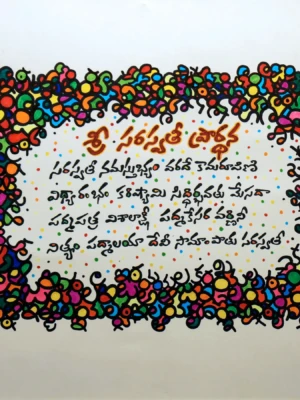 శ్రీ సరస్వతీ ప్రార్థన
సరస్వతీ నమస్తుభ్యం వరదే కామరూపిణి
విద్యారంభం కరిష్యామి సిద్ధిర్భవతు మేసదా
పద్మపత్ర విశాలాక్షీ పద్మకేసర వర్ణినీ
నిత్యం పద్మాలయా దేవీ సామాపాతు సరస్వతీ